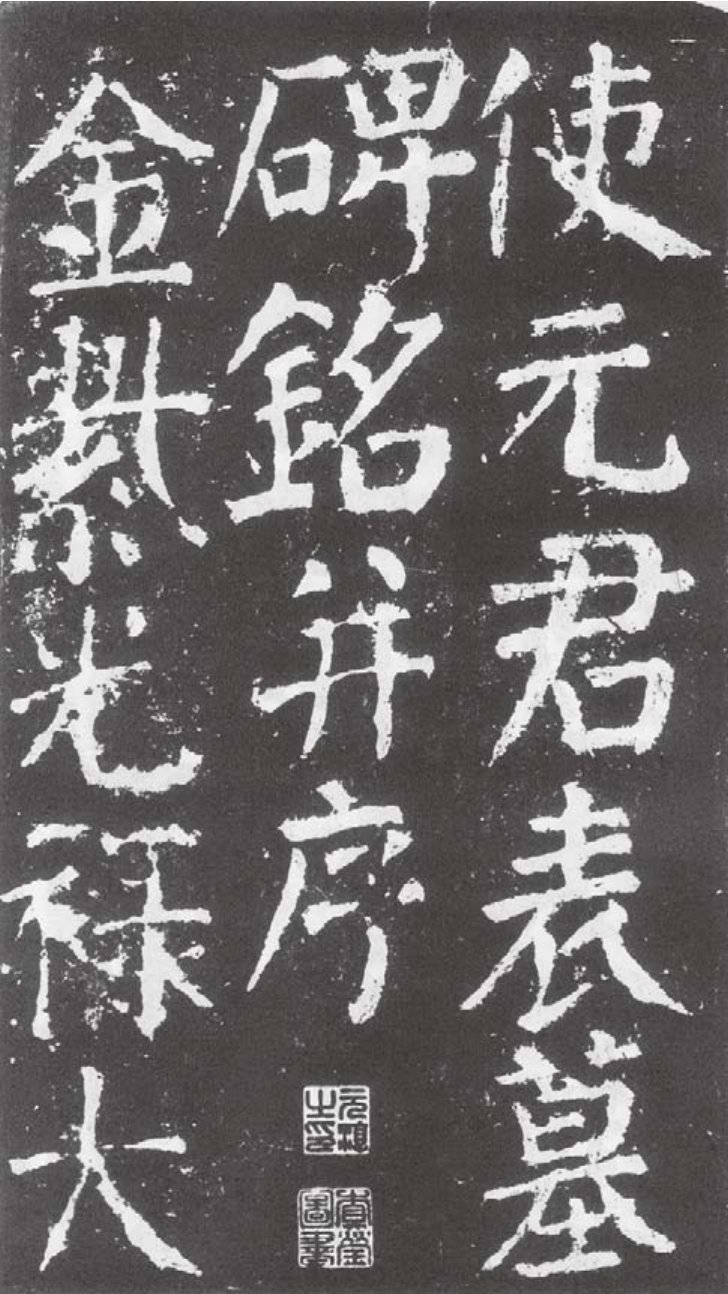 使元君表墓
碑銘并序
金紫光禄大